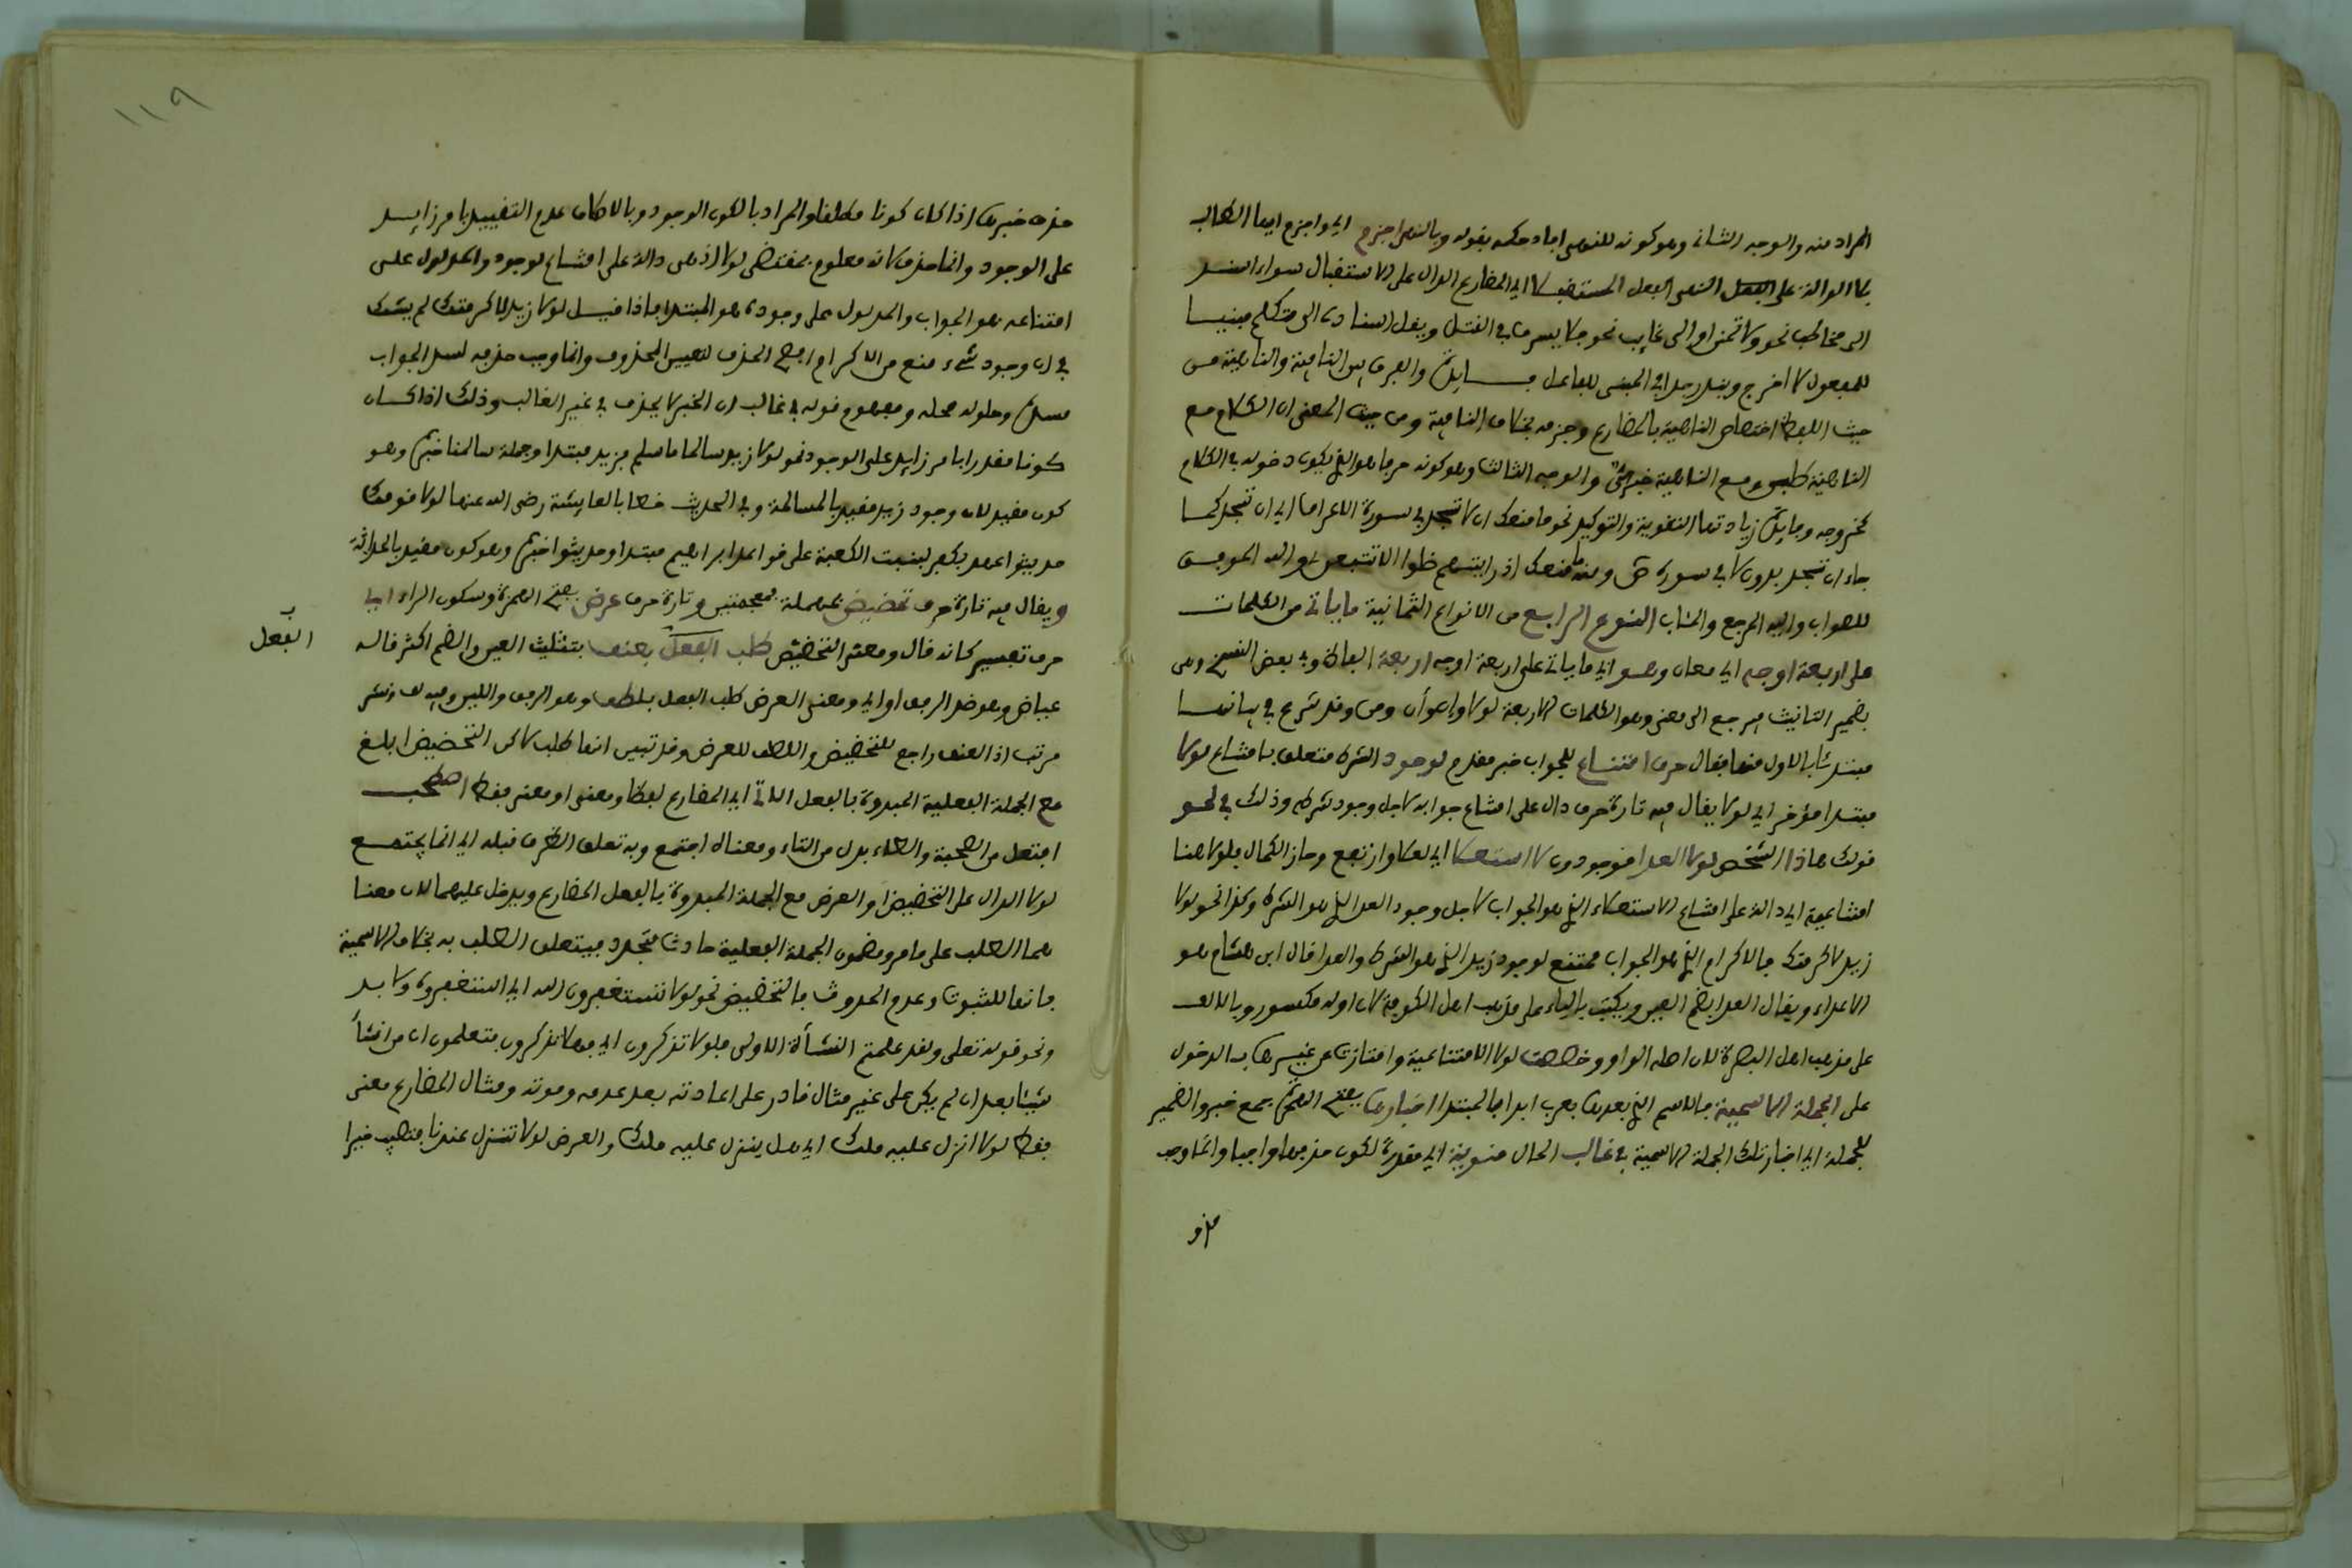 المراد منه والوجه الثاني وهو كونه للنهي افاد حكمه بقوله وبالنهي اجزم اي واجزم ايها الطالب
بلا الدالة على النهي الفعل المستقبلا اي المضارع الدال على الاستقبال سواء اسند
الى مخاطب نحو ولا تمنن او الى غايب نحو فلا يسرف في القتل ويقل اسناده الى متكلم مبنيا
للمفعول لا اخرج ويندر جدا في المبني للفاعل والفرق بين النافية والناهية من
حيث اللفظ اختصاص الناهية بالمضارع وجزمه بخلاف النافية ومن حيث المعنى ان الكلام مع
الناهية طلبي ومع النافية خبري والوجه الثالث وهو كونه حرفا هو الذي يكون دخوله في الكلام
كخروجه وفايدة زيادتها التقوية والتوكيد نحو ما منعك ان لا تسجد في سورة الاعراف اي ان تسجد كما
جاء ان تسجد بدون لا في سورة ص ومنه ما منعك اذ رايتهم ضلوا الا تتبعن والله الموفق
للصواب واليه المرجع والمئاب النوع الرابع من الانواع الثمانية ما ياتي من الكلمات
على اربعة اوجه اي معان وهو اي ما ياتي على اربعة اوجه اربعة الفاظ وفي بعض النسخ وهي
بضمير التانيث فيرجع الى معنى وهو الكلمات الاربعة لولا وإن وأن ومن وقد شرع في بيانها
مبتدئا بالاول منها فقال حرف امتناع للجواب خبر مقدم لوجود الشرط متعلق بامتناع لولا
مبتدا مؤخر اي لولا يقال فيه تارة حرف دال على امتناع جوابه لاجل وجود شرطه وذلك في نحو
قولك هاذا الشخص لولا العدا موجودون لا استعلا اي لعلا وارتفع وحاز الكمال فلولا هنا
امتناعية اي دالة على امتناع الاستعلاء الذي هو الجواب لاجل وجود العدا الذي هو الشرط وكذا نحو لولا
زيد لاكرمتك فالاكرام الذي هو الجواب ممتنع لوجود زيد الذي هو الشرط والعدا قال ابن هشام هو
الاعداء ويقال العدا بضم العين ويكتب بالياء على مذهب اهل الكوفة لان اوله مكسور وبالالف
على مذهب اهل البصرة لان اصله الواو وخصصت لولا الامتناعية وامتازت عن غيرها بالدخول
على الجملة الاسمية فالاسم الذي بعدها يعرب ابدا بالمبتدا اخبارها بفتح الهمزة جمع خبر والضمير
للجملة اي اخبار تلك الجملة الاسمية في غالب الحال منوية اي مقدرة لكون حذفها واجبا وانما وجب
حذف
١١٩
حذف خبرها اذا كان كونا مطلقا والمراد بالكون الوجود وبالاطلاق عدم التقييد بامر زايد
على الوجود وانما حذف لانه معلوم بمقتضى لولا اذ هي دالة على امتناع لوجود والمدلول على
امتناعه هو الجواب والمدلول على وجوده هو المبتدا فاذا قيل لولا زيد لاكرمتك لم يشك
في ان وجود شيء منع من الاكرام فصح الحذف لتعيين المحذوف وانما وجب حذفه لسد الجواب
مسده وحلوله محله ومفهوم قوله في غالب ان الخبر لا يحذف في غير الغالب وذلك اذا كان
كونا مقيدا بامر زايد على الوجود نحو لولا زيد سالمنا ما سلم فزيد مبتدا وجملة سالمنا خبره وهو
كون مقيد لان وجود زيد مقيد بالمسالمة وفي الحديث خطابا لعايشة رضي الله عنها لولا قومك
حديثوا عهد بكفر لبنيت الكعبة على قواعد ابراهيم مبتدا وحديثوا خبره وهو كون مقيد بالحداثة
ويقال فيه تارة حرف تحضيض بمهملة فمعجمتين وتارة حرف عرض بفتح المهملة وسكون الراء
حرف تفسير كانه قال ومعنى التحضيض طلب الفعل بعنف بتثليث العين والضم اكثر قاله
الفعل
عياض وهو ضد الرفق او اي ومعنى العرض طلب الفعل بلطف وهو الرفق واللين وفيه لف ونشر
مرتب اذ العنف راجع للتحضيض واللطف للعرض وقد تبين انهما طلب لاكن التحضيض ابلغ
مع الجملة الفعلية المبدوة بالفعل الاتي اي المضارع لفظا ومعنى او معنى فقط اصطحب
افتعل من الصحبة والطاء بدل من التاء ومعناه اجتمع وبه تعلق الظرف قبله اي انما يجتمع
لولا الدال على التحضيض او العرض مع الجملة المبدوة بالفعل المضارع ويدخل عليهما لان معنا
هما الطلب على ما مر ومضمون الجملة الفعلية حادث متجدد فيتعلق الطلب به بخلاف الاسمية
فانها للثبوت وعدم الحدوث فالتحضيض نحو لولا تستغفرون الله اي استغفروه ولا بد
ونحو قوله تعلى ولقد علمتم النشأة الاولى فلولا تذكرون اي فهلا تذكرون فتعلمون ان من انشأ
شيئا بعد ان لم يكن على غير مثال قادر على اعادته بعد عدمه وموته ومثال المضارع معنى
فقط لولا انزل عليه ملك اي هل ينزل عليه ملك والعرض لولا تنزل عندنا فتصيب خيرا